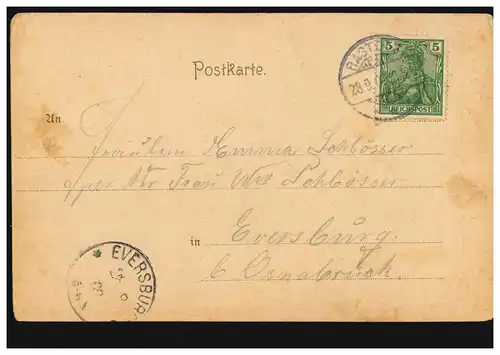 Postkarte.
5 5
REICHSPOST
RASTE
28.9.
An
Fräulein Emma Schlösser
per Adr Frau Wwe Schlösser
in Eversburg
b Osnabrück.
* EVERSBURG